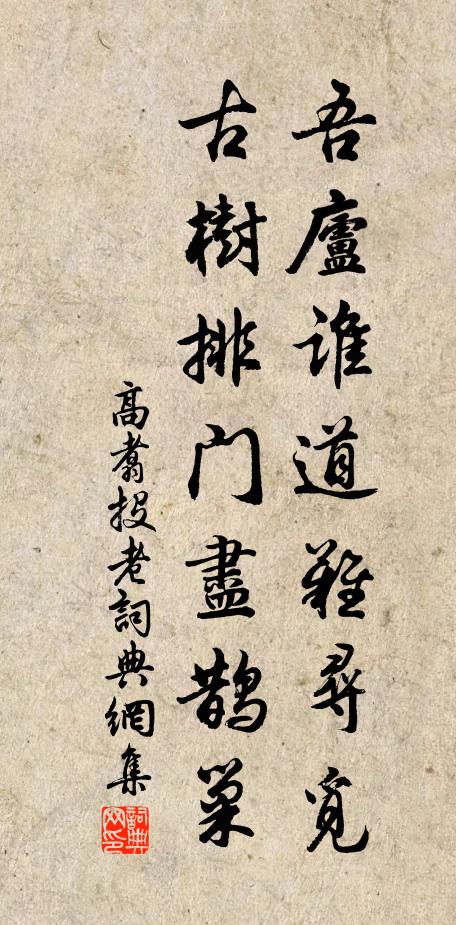 吾廬誰道難尋覓
古樹排門盡鵲巢
高翥投老詞典網集
詞典网印